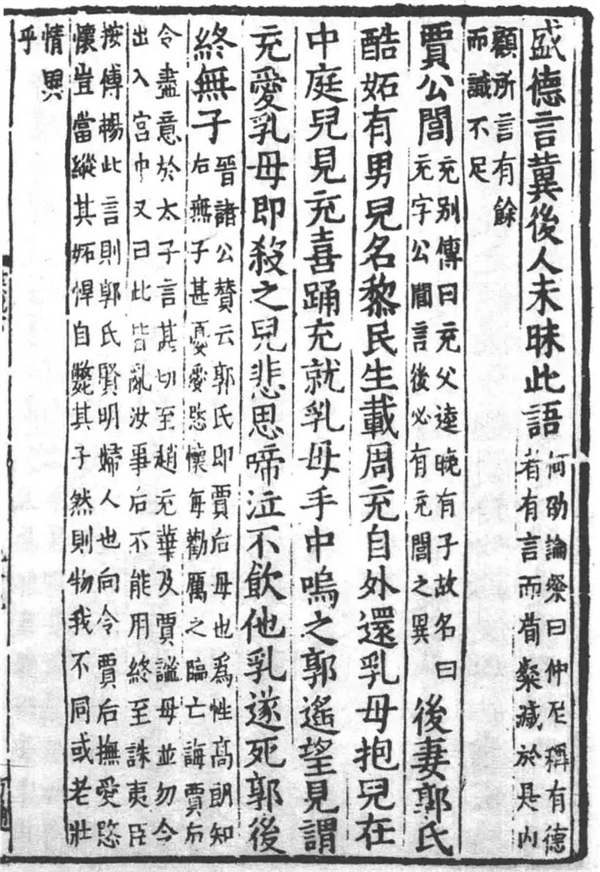 盛德言冀後人未昧此語何劭論粲曰仲尼稱有德
者有言而荀粲減於是内
顧所言有餘
而識不足
賈公閭充別傳曰充父逵晚有子故名曰
充字公閭言後必有充閭之異後妻郭氏
酷妬有男兒名黎民生載周充自外還乳母抱兒在
中庭兒見充喜踊充就乳母手中嗚之郭遙望見謂
充愛乳母即殺之兒悲思啼泣不飲他乳遂死郭後
終無子晉諸公贊云郭氏即賈后母也爲性高朗知
右無子甚憂愛愍懷每勸厲之臨亡誨賈后
令盡意於太子言甚切至趙充華及賈謐母並勿令
出入宮中又曰此皆亂汝事后不能用終至誅夷臣
按傅暢此言則郭氏賢明婦人也向令賈后撫愛愍
懷豈當縱其妬悍自斃其子然則物我不同或老壯
情異
乎